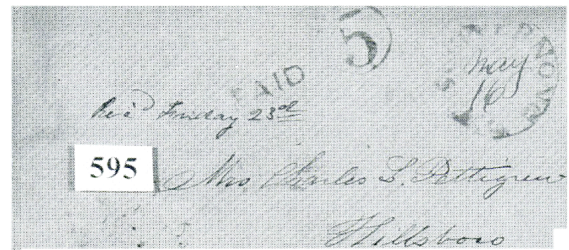 5
PAID
May
16
Rec'd Friday 23rd
595
Mrs Charles L. Pettigrew
Hillsboro